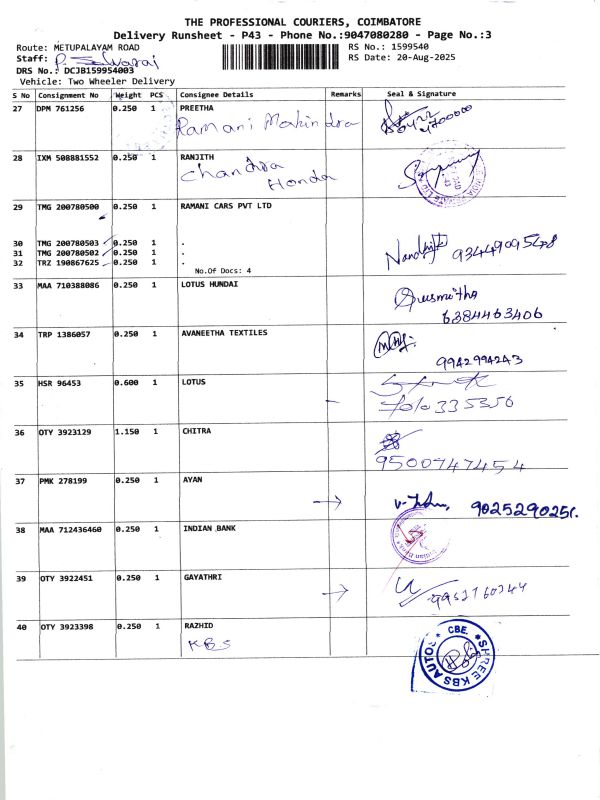 THE PROFESSIONAL COURIERS, COIMBATORE
Delivery Runsheet - P43 - Phone No.:9047080280 - Page No.:3
Route: METUPALAYAM ROAD RS No.: 1599540
Staff: P. Selvaraj RS Date: 20-Aug-2025
DRS No.: DCJB159954003
Vehicle: Two Wheeler Delivery
S No Consignment No Weight PCS Consignee Details Remarks Seal & Signature
27 DPM 761256 0.250 1 PREETHA
Ramani Mahindra
28 IXM 508881552 0.250 1 RANJITH
Chandra
Honda
29 TMG 200780500 0.250 1 RAMANI CARS PVT LTD
30 TMG 200780503 0.250 1 .
31 TMG 200780502 0.250 1 .
32 TRZ 190867625 0.250 1 .
No.Of Docs: 4
9344909548
33 MAA 710388086 0.250 1 LOTUS HUNDAI
Susmitha
6384463406
34 TRP 1386057 0.250 1 AVANEETHA TEXTILES
9942994243
35 HSR 96453 0.600 1 LOTUS
36 OTY 3923129 1.150 1 CHITRA
9500747454
37 PMK 278199 0.250 1 AYAN
9025290251.
38 MAA 712436460 0.250 1 INDIAN BANK
39 OTY 3922451 0.250 1 GAYATHRI
40 OTY 3923398 0.250 1 RAZHID
KBS
CBE.
SHREE KBS AUTO